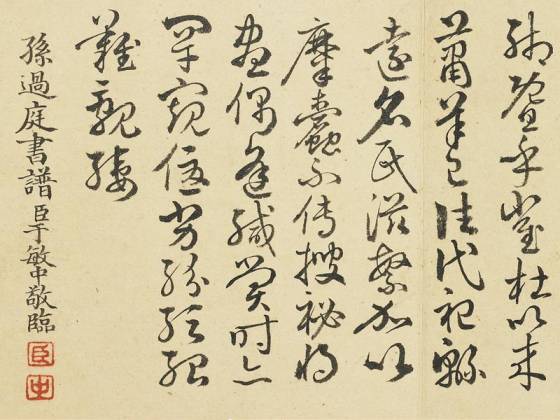 緗暨乎崔杜以來
蕭羊已往代祀緜
遠名氏滋繁加以
糜蠹不傳搜祕將
盡偶逢緘賞時亦
罕窺優劣紛紜殆
難覼縷
孫過庭書譜 臣于敏中敬臨
臣
中